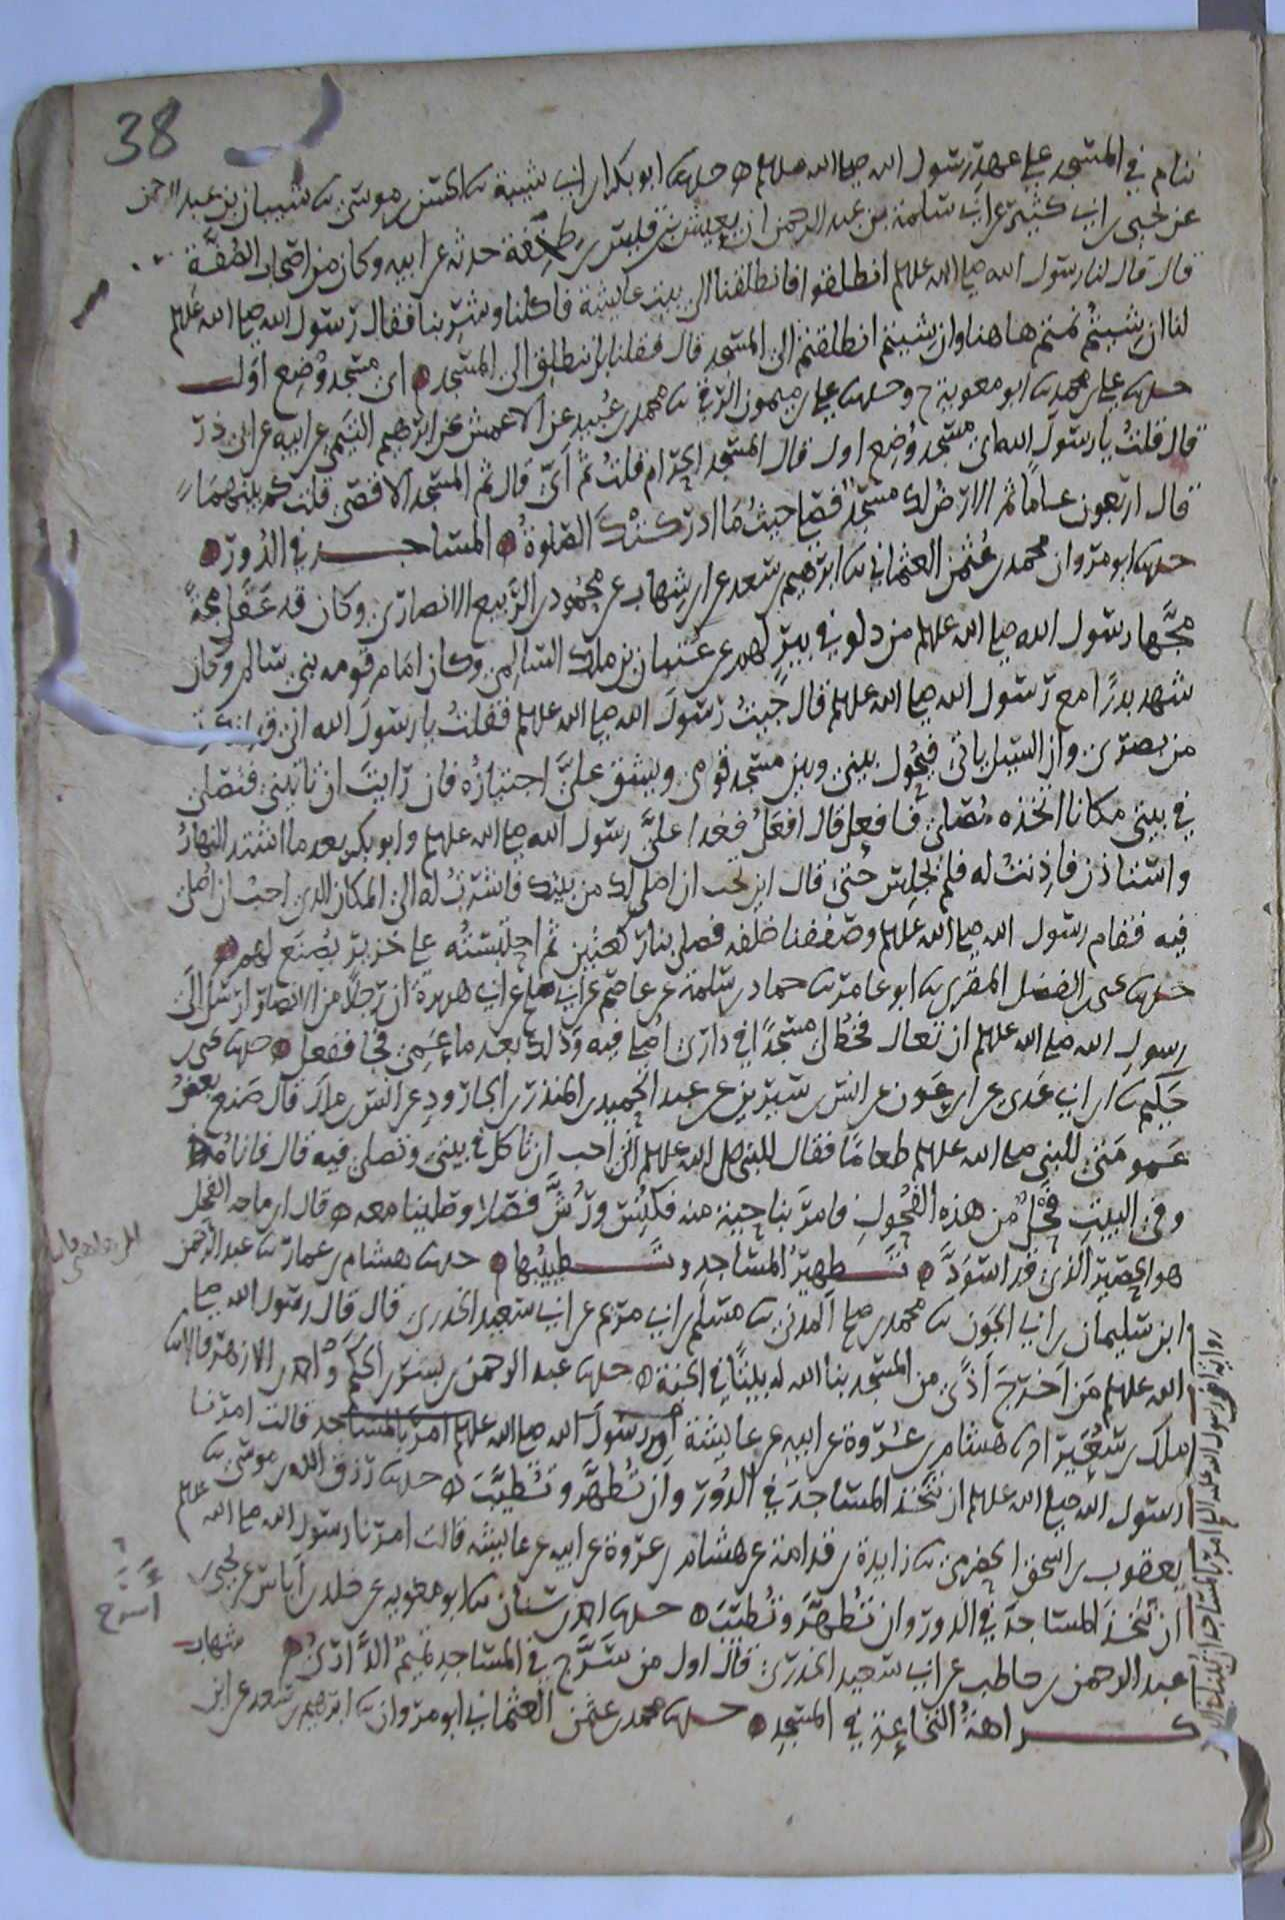 38
ننام في المسجد على عهد رسول الله صلى الله عليه وسلم حدثنا ابو بكر بن ابي شيبة ثنا الحسن بن موسى ثنا شيبان بن عبد الرحمن
عن يحيى بن ابي كثير عن ابي سلمة بن عبد الرحمن ان يعيش بن قيس بن طخفة حدثه عن ابيه وكان من اصحاب الصفة
قال قال لنا رسول الله صلى الله عليه وسلم انطلقوا فانطلقنا الى بيت عايشة فاكلنا وشربنا فقال رسول الله صلى الله عليه وسلم
لنا ان شيتم نمتم هاهنا وان شيتم انطلقتم الى المسجد قال فقلنا بل ننطلق الى المسجد اي مسجد وضع اول
حدثنا علي بن محمد ثنا ابو معوية ح وحدثنا علي بن ميمون الرقي ثنا محمد بن عبيد عن الاعمش عن ابرهيم التيمي عن ابيه عن ابي ذر
قال قلت يا رسول الله اي مسجد وضع اول قال المسجد الحرام قلت ثم اي قال ثم المسجد الاقصى قلت كم بينهما
قال اربعون عاما ثم الارض لك مسجد فصل حيث ما ادركتك الصلوة المساجد في الدور
حدثنا ابو مروان محمد بن عثمن العثماني ثنا ابرهيم بن سعد عن ابن شهاب عن محمود بن الربيع الانصاري وكان قد عقل مجة
مجها رسول الله صلى الله عليه وسلم من دلو في بير لهم عن عتبان بن ملك السالمي وكان امام قومه بني سالم وكان
شهد بدرا مع رسول الله صلى الله عليه وسلم قال جيت رسول الله صلى الله عليه وسلم فقلت يا رسول الله اني قد انكرت
من بصري وان السيل ياتي فيحول بيني وبين مسجد قومي ويشق علي اجتيازه فان رايت ان تاتيني فتصلي
في بيتي مكانا اتخذه مصلى فافعل قال افعل فغدا علي رسول الله صلى الله عليه وسلم وابو بكر بعد ما اشتد النهار
واستاذن فاذنت له فلم يجلس حتى قال اين تحب ان اصلي لك من بيتك فاشرت له الى المكان الذي احب ان اصلي
فيه فقام رسول الله صلى الله عليه وسلم وصففنا خلفه فصلى بنا ركعتين ثم احتبسته على خزير يصنع لهم
حدثنا يحيى بن الفضل المقري ثنا ابو عامر ثنا حماد بن سلمة عن عاصم عن ابي صلح عن ابي هريرة ان رجلا من الانصار ارسل الى
رسول الله صلى الله عليه وسلم ان تعال فخط لي مسجدا في داري اصلي فيه وذلك بعد ما عمي فجا ففعل حدثنا يحيى بن
حكيم ثنا ابن ابي عدي عن ابن عون عن انس بن سيرين عن عبد الحميد بن المنذر بن الجارود عن انس بن ملك قال صنع بعض
عمومتي للنبي صلى الله عليه وسلم طعاما فقال للنبي صلى الله عليه وسلم اني احب ان تاكل في بيتي وتصلي فيه قال فاتاه
وفي البيت فحل من هذه الفحول فامر بناحية منه فكنس ورش فصلى وصلينا معه قال ابن ماجه الفحل
هو الحصير الذي قد اسود تطهير المساجد وتطييبها حدثنا هشام بن عمار ثنا عبد الرحمن
ابن سليمان بن ابي الجون ثنا محمد بن صلح المدني ثنا مسلم بن ابي مريم عن ابي سعيد الخدري قال قال رسول الله صلى
الله عليه وسلم من اخرج اذى من المسجد بنا الله له بيتا في الجنة حدثنا عبد الرحمن بن بشر بن الحكم واحمد بن الازهر قالا ثنا
ملك بن سعير انا هشام بن عروة عن ابيه عن عايشة ان رسول الله صلى الله عليه وسلم امر بالمساجد قالت امرنا
رسول الله صلى الله عليه وسلم ان نتخذ المساجد في الدور وان تطهر وتطيب حدثنا رزق الله بن موسى ثنا
يعقوب بن اسحق الحضرمي ثنا زايدة بن قدامة عن هشام بن عروة عن ابيه عن عايشة قالت امرنا رسول الله صلى الله عليه وسلم
ان نتخذ المساجد في الدور وان تطهر وتطيب حدثنا احمد بن سنان ثنا ابو معوية عن خلد بن اياس عن يحيى بن
عبد الرحمن بن حاطب عن ابي سعيد الخدري قال اول من سرج في المساجد تميم الداري
كراهة النخاعة في المسجد حدثنا محمد بن عثمن العثماني ابو مروان ثنا ابرهيم بن سعد عن ابن
شهاب
أسرج